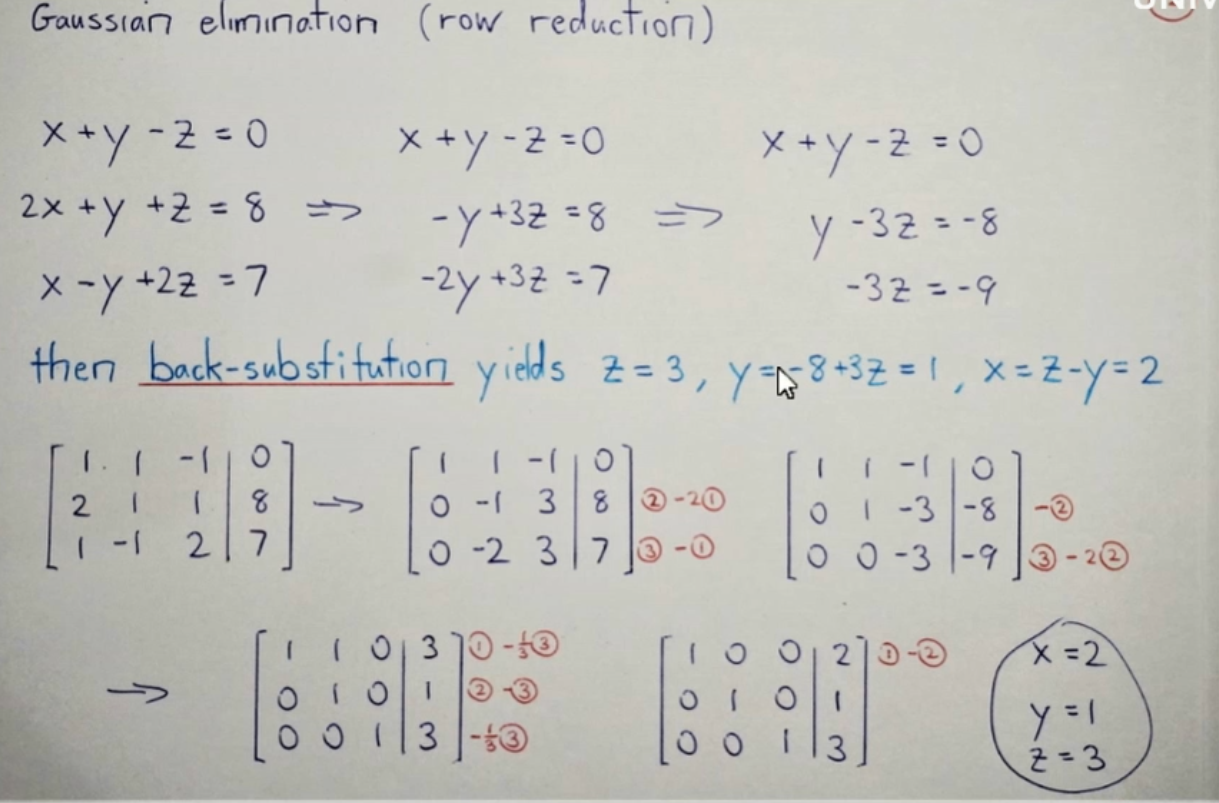 Gaussian elimination (row reduction)
x + y - z = 0
2x + y + z = 8 ⇒
x - y + 2z = 7
x + y - z = 0
-y + 3z = 8 ⇒
-2y + 3z = 7
x + y - z = 0
y - 3z = -8
-3z = -9
then back-substitution yields z = 3, y = -8 + 3z = 1, x = z - y = 2
[ 1 1 -1 | 0 ]
[ 2 1 1 | 8 ] →
[ 1 -1 2 | 7 ]
[ 1 1 -1 | 0 ]
[ 0 -1 3 | 8 ] ② - 2①
[ 0 -2 3 | 7 ] ③ - ①
[ 1 1 -1 | 0 ]
[ 0 1 -3 | -8 ] -②
[ 0 0 -3 | -9 ] ③ - 2②
→
[ 1 1 0 | 3 ] ① - ⅓③
[ 0 1 0 | 1 ] ② - ③
[ 0 0 1 | 3 ] -⅓③
[ 1 0 0 | 2 ] ① - ②
[ 0 1 0 | 1 ]
[ 0 0 1 | 3 ]
x = 2
y = 1
z = 3